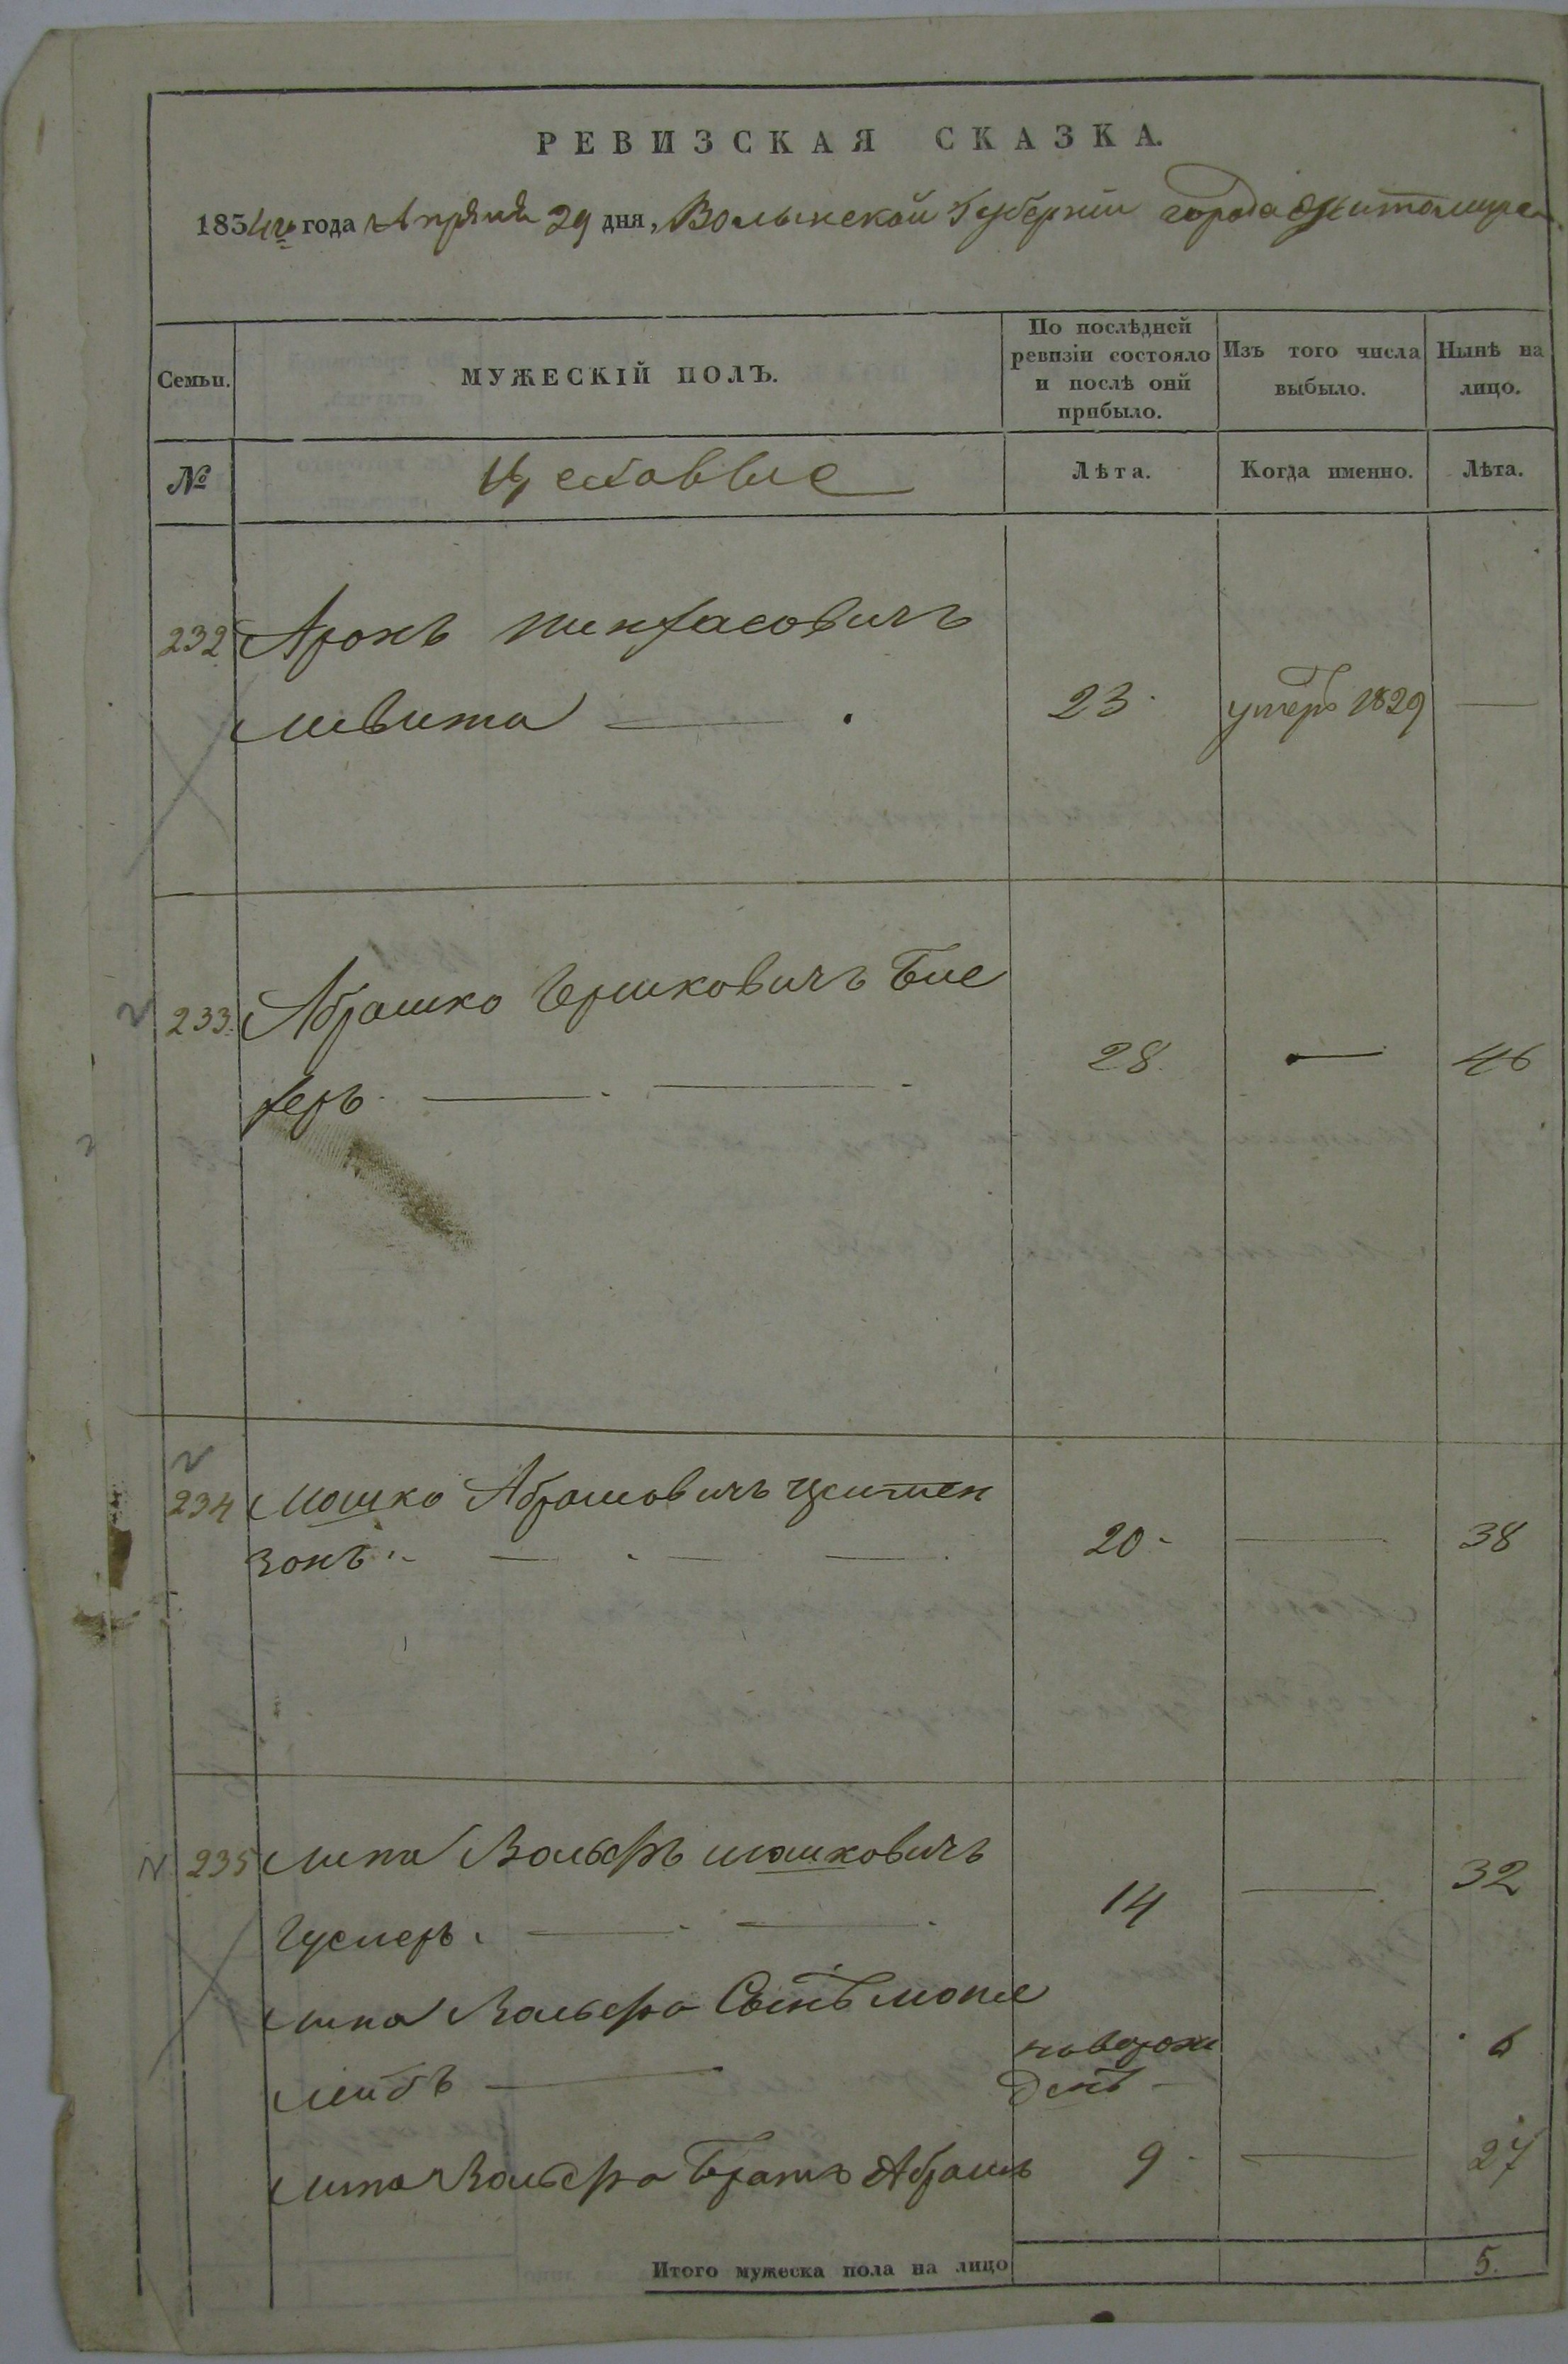 РЕВИЗСКАЯ СКАЗКА.
1834го года Апреля 29 дня, Волынской Губерніи города Житомира
Семьи. МУЖЕСКІЙ ПОЛЪ. По послѣдней ревизіи состояло и послѣ оной прибыло. Изъ того числа выбыло. Нынѣ на лицо.
№ Цеховые Лѣта. Когда именно. Лѣта.
232 Аронъ Пинхасовичъ
Левита 23 умеръ 1829 —
233 Абрашко Гершковичъ
28 — 46
234 Мошко Абрамовичъ
зонъ 20 — 38
235 Липа Вольфъ Мошковичъ
14 — 32
Липа Вольфа Сынъ
Лейбъ новорожденъ 6
Липа Вольфа Братъ Абрамъ 9 — 27
Итого мужеска пола на лицо 5.